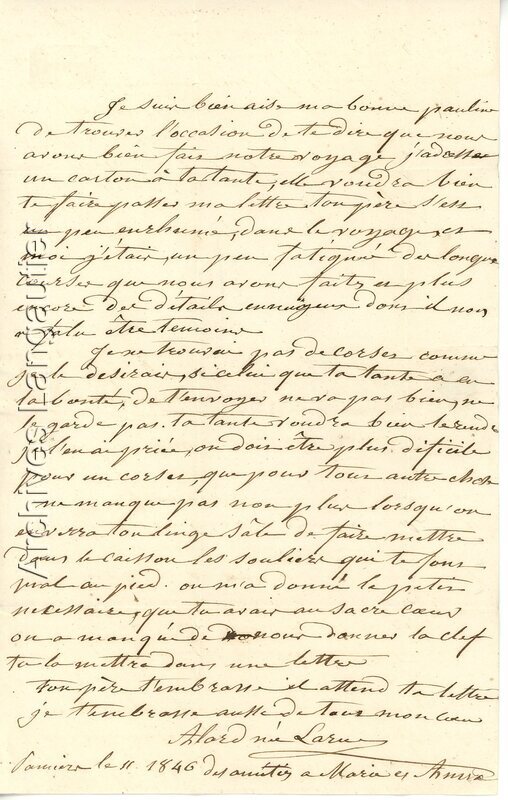 Je suis bien aise ma bonne pauline
de trouver l'occasion de te dire que nous
avons bien fais notre voyage, j'adesse
un carton à ta tante, elle voudra bien
te faire passer ma lettre ton père s'est
un peu enrhumé, dans le voyage, et
moi j'étais, un peu fatigué des longues
courses que nous avons faites en plus
encore des détails ennuyeux dont il nous
a falu être temoins
Je ne trouvai pas de corset comme
je le desirais, si celui que ta tante a eu
la bonté, de t'envoyer ne va pas bien, ne
le garde pas. ta tante voudra bien le rendre
je l'en ai priée, on doit être plus dificile
pour un corset, que pour tout autre chose
ne manque pas non plus lorsqu'on
enverra ton linge sâle de faire mettre
dans le caisson les souliers qui te font
mal au pied. on m'a donné le petit
necessaire, que tu avais au sacre cœur
on a manqué de nous donner la clef
tu la mettra dans une lettre
ton père t'embrasse il attend ta lettre
je t'embrasse aussi de tout mon cœur
Alard née Larue
le 11 1846 des amitiés a Marie et
Archives Langautier